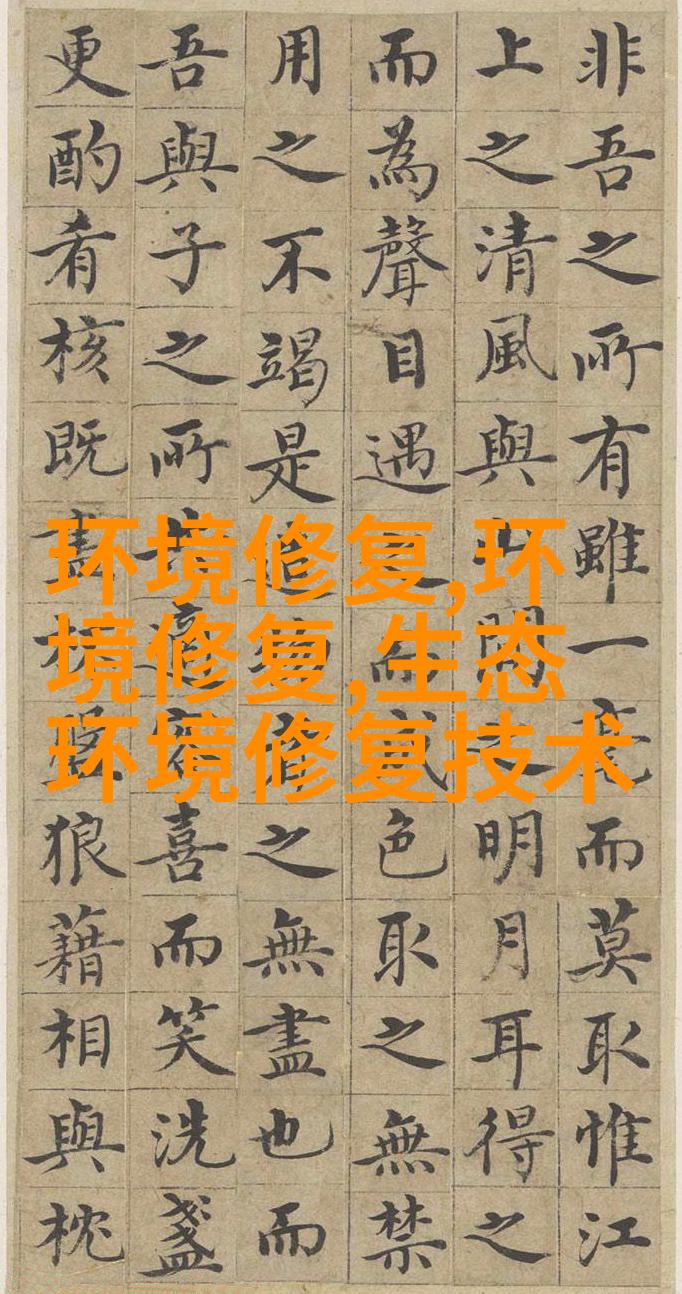 非吾之所有雖一毫而莫取惟江
上之清風與山間之明月耳得之
而為聲目遇之而成色取之無禁
用之不竭是造物者之無盡也而
吾與子之所適客喜而笑洗盞
更酌肴核既盡杯盤狼藉相與枕
环境修复,环
境修复,生态
环境修复技术